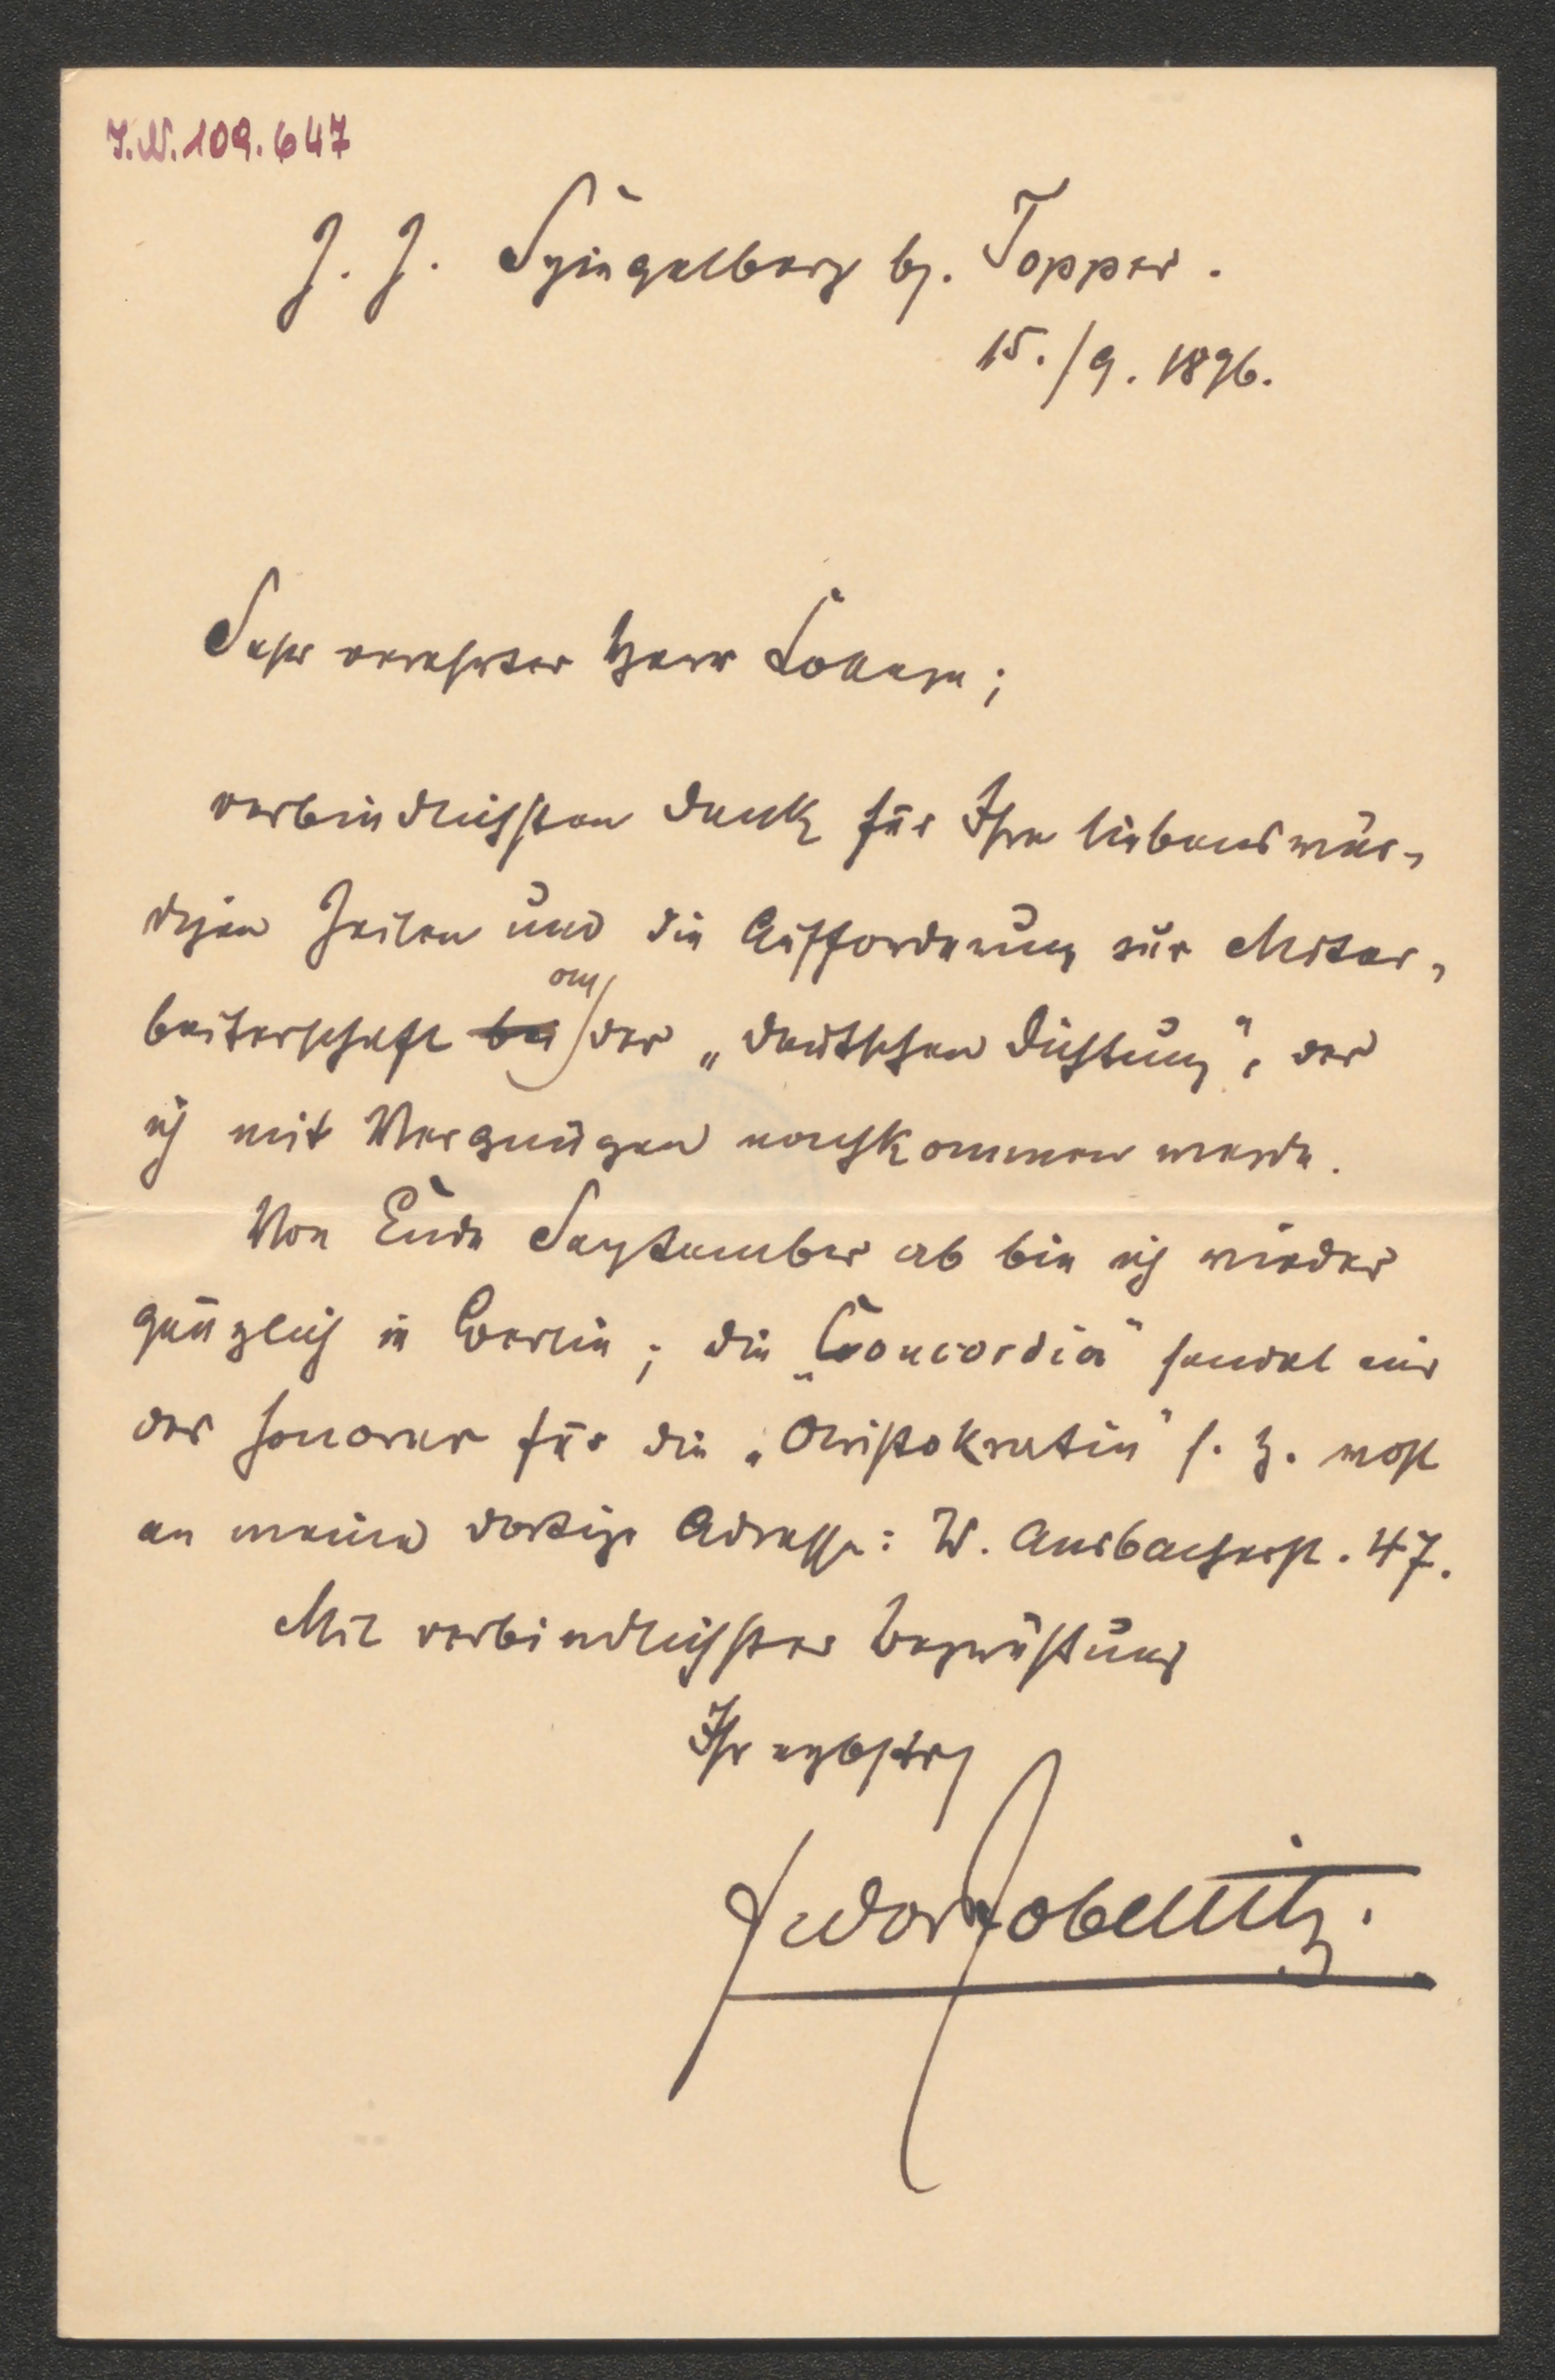 I.N. 109.647
Z. Z. Spiegelberg b. Topper.
15./9. 1896.
Sehr verehrter Herr College;
verbindlichsten Dank für Ihre liebenswür-
digen Zeilen und die Aufforderung zur Mitar-
beiterschaft bei an der „Deutschen Dichtung", der
ich mit Vergnügen nachkommen werde.
Von Ende September ab bin ich wieder
gänzlich in Berlin; die „Concordia" sendet mir
das Honorar für die „Aristokratin" s. Z. wohl
an meine dortige Adresse: W. Ansbacherst. 47.
Mit verbindlichster Begrüßung
Ihr ergbstr
Fedor Zobeltitz.